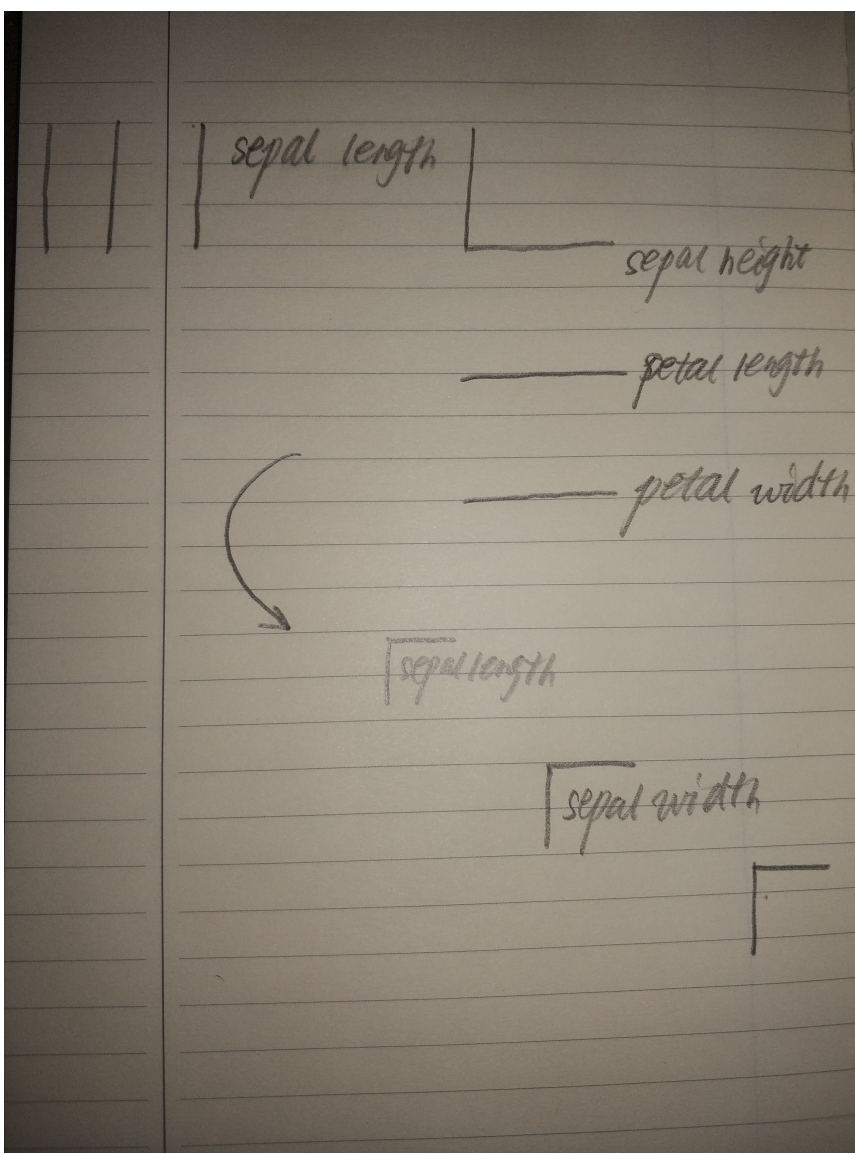 sepal length
sepal height
petal length
petal width
sepal length
sepal width